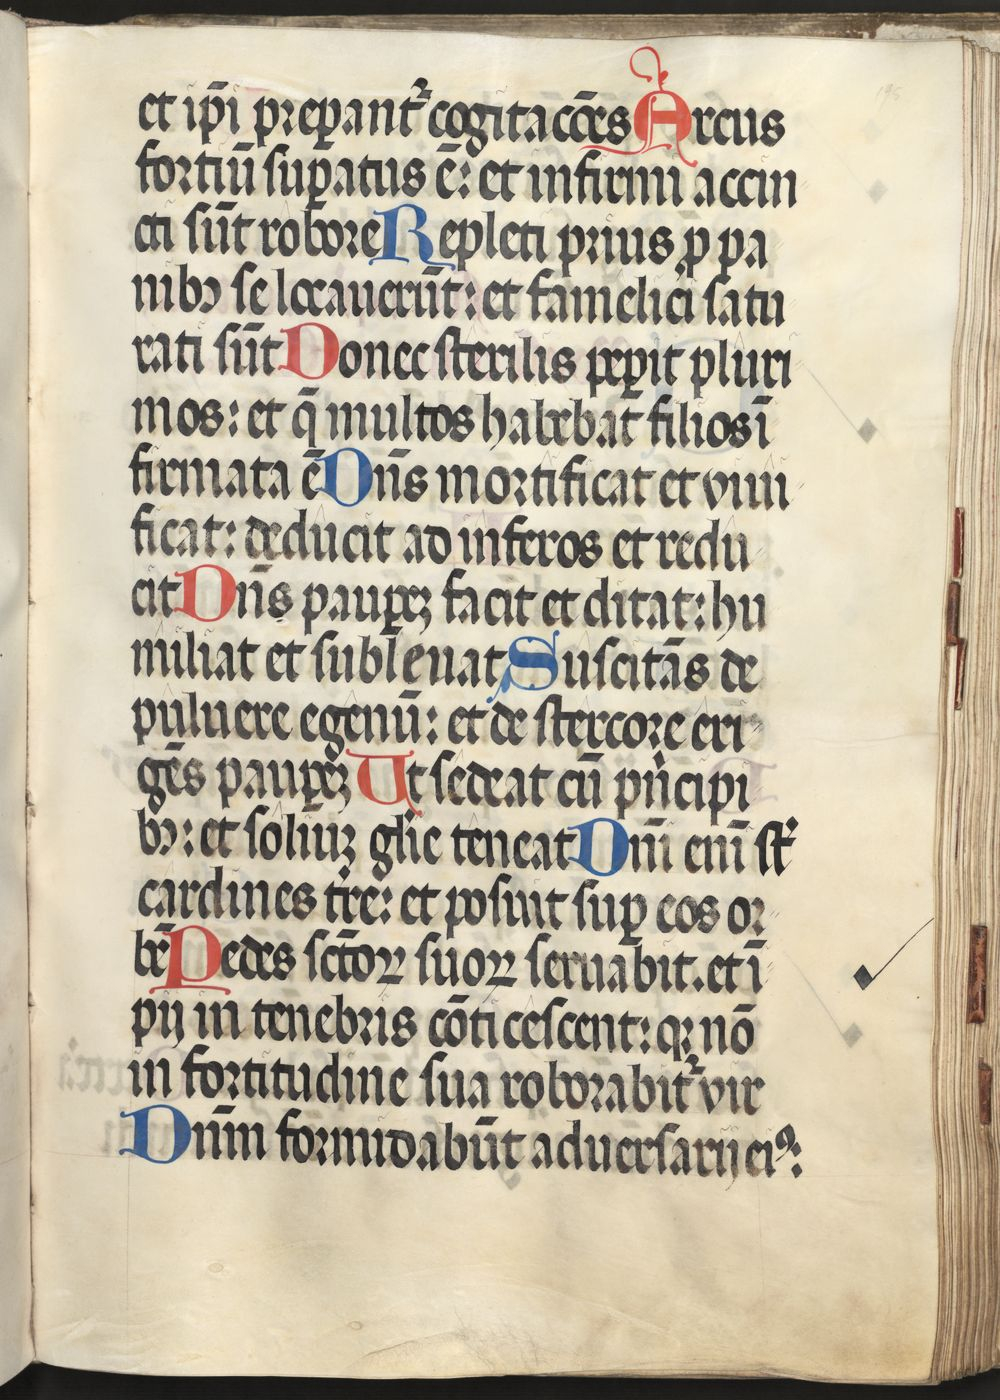 et ip̄i prepant᷑ cogitacōes Arcus
fortiū suꝑatus ē: et infirmi accin
cti sūt robore Repleti prius ꝓ pa
nibꝫ se locauerūt: et famelici satu
rati sūt Donec sterilis peꝑit pluri
mos: et q̄ multos habebat filios ī
firmata ē Dn̄s mortificat et viui
ficat: deducit ad inferos et redu
cit Dn̄s pauꝑeꝫ facit et ditat: hu
miliat et subleuat Suscitās de
puluere egenū: et de stercore eri
gēs pauꝑeꝫ Ut sedeat cū pn̄cipi
bꝫ: et soliuꝫ glīe teneat Dn̄i eni̅ st᷑
cardines tr̄e: et posuit suꝑ eos or
bē Pedes sctōꝝ suoꝝ seruabit. et ī
pij in tenebris cōticescent: qꝛ nō
in fortitudine sua roborabit᷑ vir
Dn̄m formidabūt aduersarij eiꝰ: